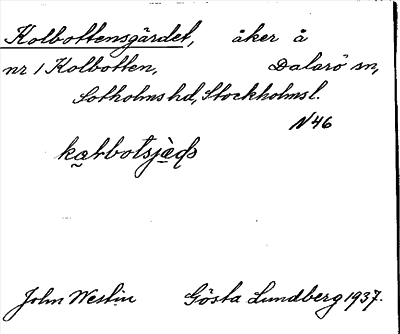 Kolbottensgärdet, åker å
nr 1 Kolbotten, Dalarö sn,
Sotholms hd, Stockholms l.
N46
John Westin Gösta Lundberg 1937.